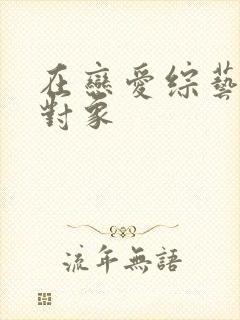 在戀愛綜藝
對象
流年無語